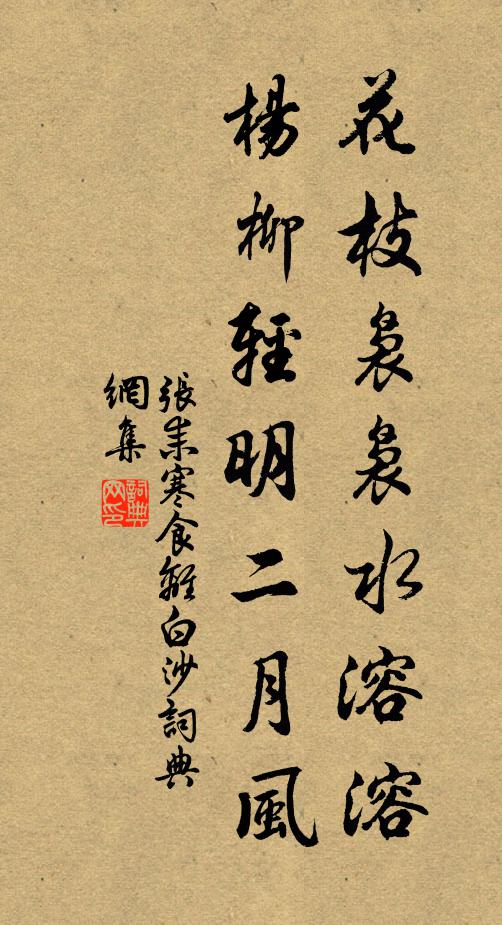 花枝裊裊水溶溶
楊柳輕明二月風
張耒寒食離白沙詞典
網集
詞典網印